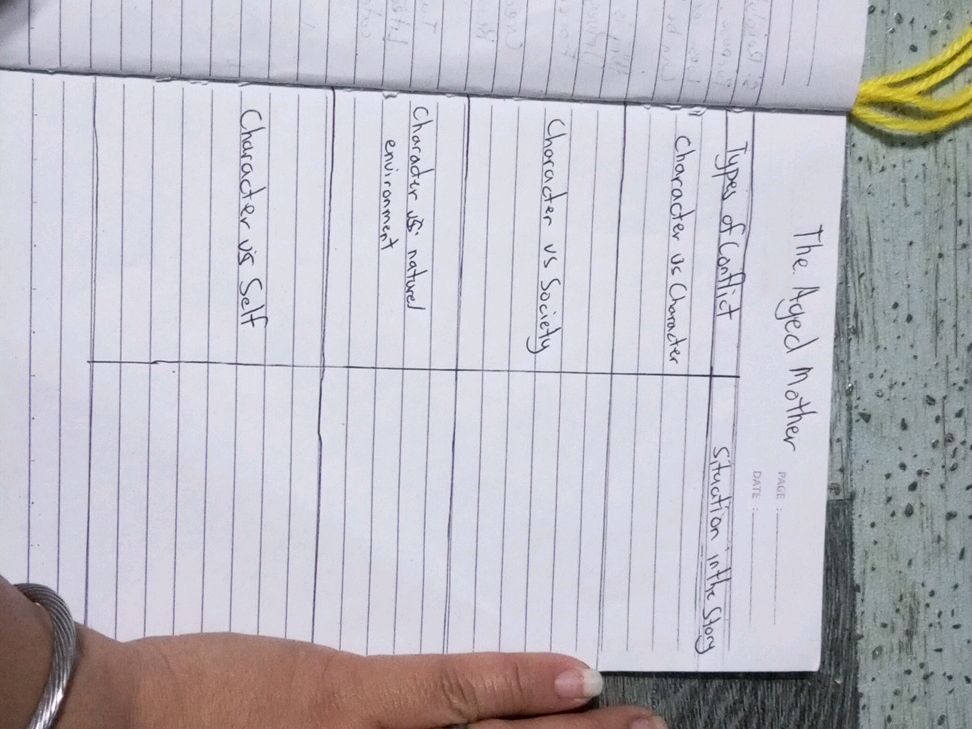 The Aged Mother
PAGE :
DATE :
Types of Conflict
Situation in the Story
Character vs Character
Character vs Society
Character vs. naturel
environment
Character vs Self